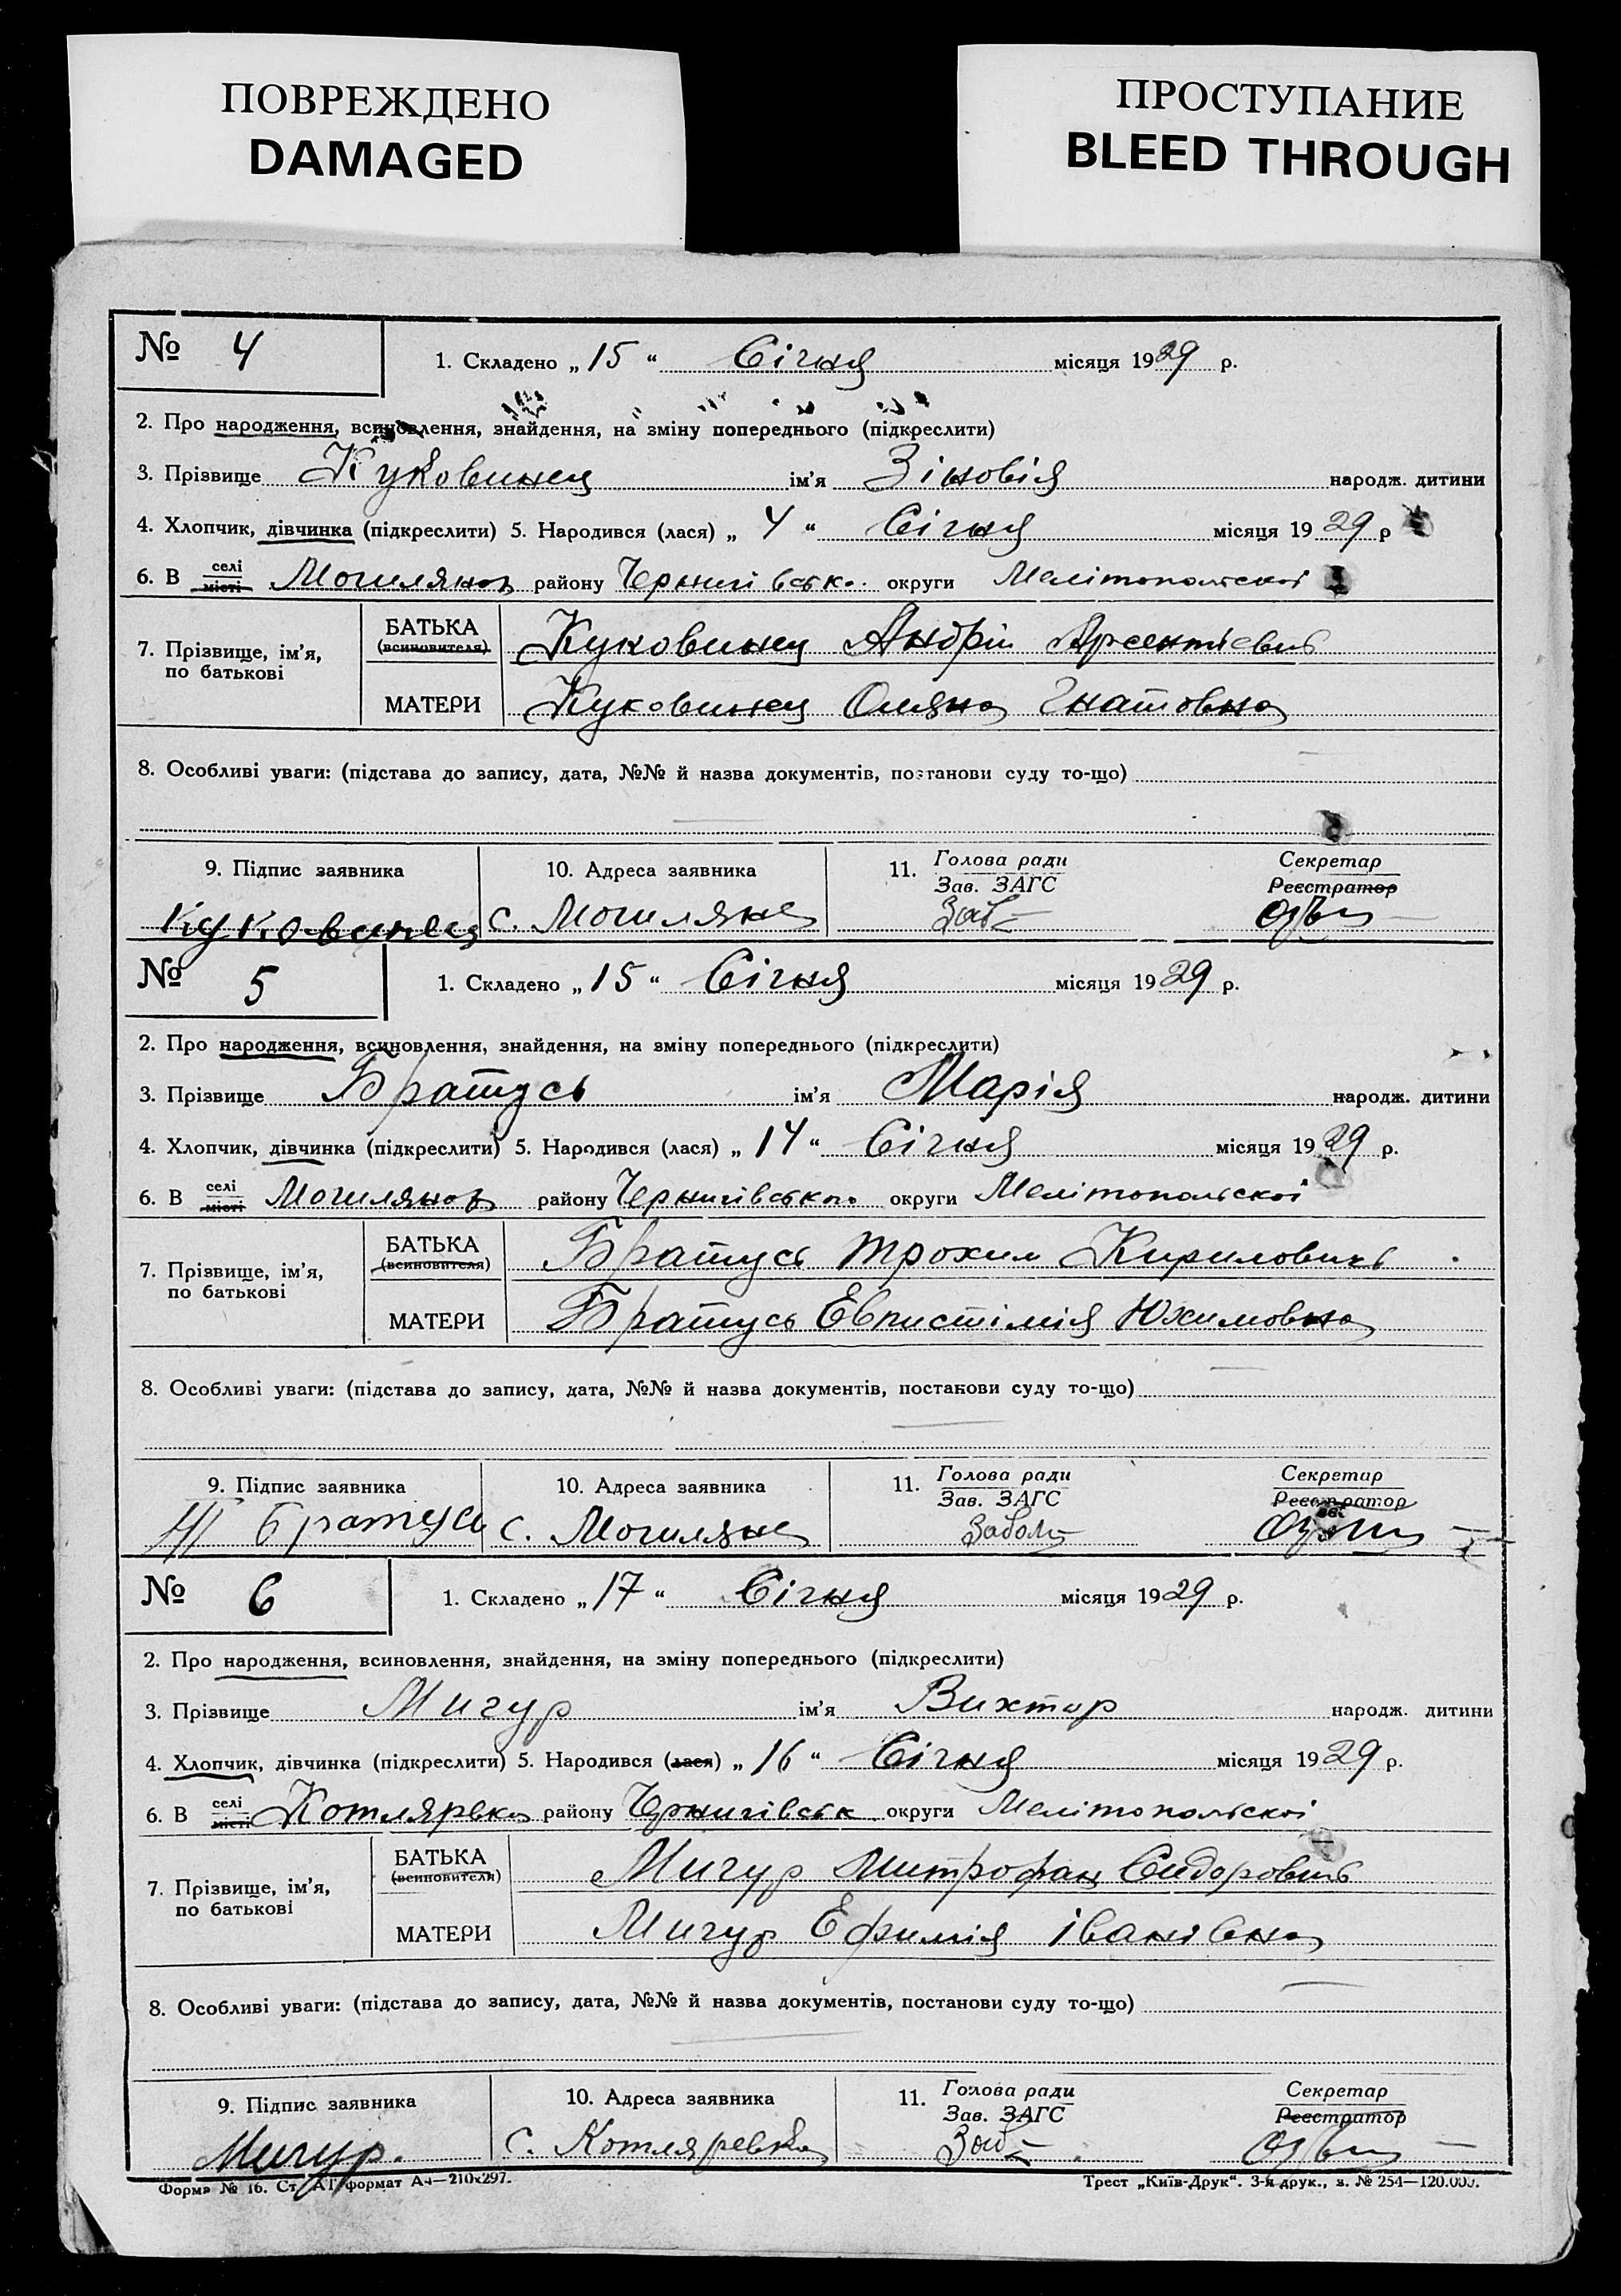 ПОВРЕЖДЕНО
DAMAGED
ПРОСТУПАНИЕ
BLEED THROUGH
№ 4 1. Складено „15“ Січня місяця 1929 р.
2. Про народження, всиновлення, знайдення, на зміну попереднього (підкреслити)
3. Прізвище Куковинец ім'я Зіновія народж. дитини
4. Хлопчик, дівчинка (підкреслити) 5. Народився (лася) „4“ Січня місяця 1929 р
6. В селі місті Могилянах району Чернигівсько. округи Мелітопольскої
7. Прізвище, ім'я, по батькові
БАТЬКА (всиновителя) Куковинец Андрій Арсентієвич
МАТЕРИ Куковинец Оляна Гнатовна
8. Особливі уваги: (підстава до запису, дата, №№ й назва документів, постанови суду то-що)
9. Підпис заявника 10. Адреса заявника 11. Голова ради Зав. ЗАГС Секретар Реєстратор
Куковинец с. Могиляне
№ 5 1. Складено „15“ Січня місяця 1929 р.
2. Про народження, всиновлення, знайдення, на зміну попереднього (підкреслити)
3. Прізвище Братусь ім'я Марія народж. дитини
4. Хлопчик, дівчинка (підкреслити) 5. Народився (лася) „14“ Січня місяця 1929 р.
6. В селі місті Могилянах району Чернигівсько. округи Мелітопольскої
7. Прізвище, ім'я, по батькові
БАТЬКА (всиновителя) Братусь Трохим Кирилович
МАТЕРИ Братусь Евпистімія Юхимовна
8. Особливі уваги: (підстава до запису, дата, №№ й назва документів, постанови суду то-що)
9. Підпис заявника 10. Адреса заявника 11. Голова ради Зав. ЗАГС Секретар Реєстратор
Братусь с. Могиляне
№ 6 1. Складено „17“ Січня місяця 1929 р.
2. Про народження, всиновлення, знайдення, на зміну попереднього (підкреслити)
3. Прізвище Мигур ім'я Вихтор народж. дитини
4. Хлопчик, дівчинка (підкреслити) 5. Народився (лася) „16“ Січня місяця 1929 р.
6. В селі місті Котлярвка району Чернигівськ округи Мелітопольскої
7. Прізвище, ім'я, по батькові
БАТЬКА (всиновителя) Мигур Митрофан Сидорович
МАТЕРИ Мигур Ефимія Іванівна
8. Особливі уваги: (підстава до запису, дата, №№ й назва документів, постанови суду то-що)
9. Підпис заявника 10. Адреса заявника 11. Голова ради Зав. ЗАГС Секретар Реєстратор
Мигур. с. Котляревка
Форма № 16. Ст. АТ формат А4—210x297. Трест „Київ-Друк“. 3-я друк., з. № 254—120.000.